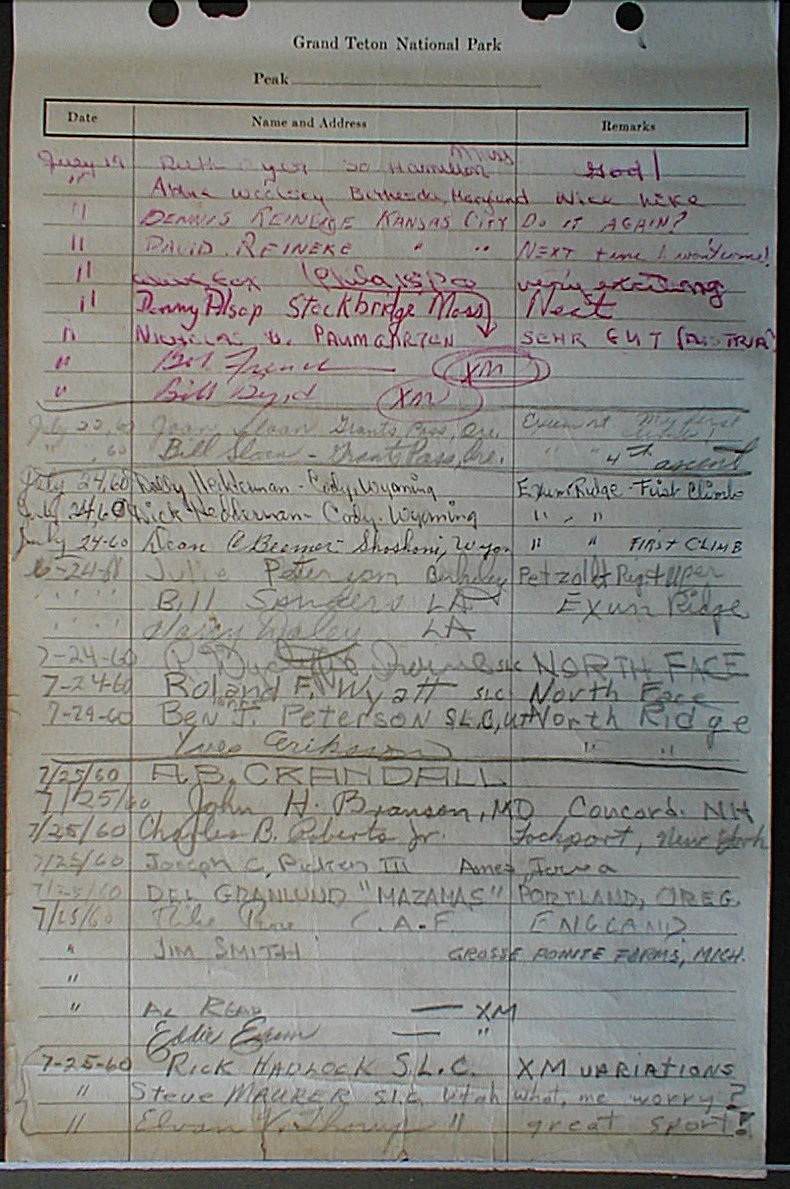 Grand Teton National Park
Peak
Date Name and Address Remarks
July 19 Ruth So Hamilton Mass God!
" Bethesda, Maryland Nice hike
" DENNIS REINEKE KANSAS CITY DO IT AGAIN?
" DAVID REINEKE " " NEXT time I won't come!
" Cox very exciting
" Denny Alsop Stockbridge Mass Neat
" NICHOLAS V. PAUMGARTEN SEHR GUT (AUSTRIA)
" Bob French XM
" Bill Byrd XM
July 22, 60 Joan Sloan Grants Pass, Ore. Exum rt My first
" , 60 Bill Sloan - Grants Pass, Ore. " " 4th ascent
July 24, 60 Hedderman - Cody, Wyoming Exum Ridge - First Climb
July 24, 60 Rick Hedderman - Cody, Wyoming " " "
July 24-60 Dean C Beemer Shoshoni, Wyo " " FIRST CLIMB
-24-60 Julie Peterson Berkeley Petzoldt Rig + Upper
" " " Bill Sanders LA Exum Ridge
" " " Harry Daley LA
7-24-60 SLC NORTH FACE
7-24-60 Roland F. Wyatt SLC North Face
7-24-60 Ben J. Peterson S.L.C, UT North Ridge
Yves Erikson " "
7/25/60 A.B. CRANDALL
7/25/60 John H. Branson, MD Concord. NH
7/25/60 Charles B. Roberts Jr. Lockport, New York
7/25/60 Joseph C. Picken III Ames, Iowa
7/25/60 DEL GRANLUND "MAZAMAS" PORTLAND, OREG.
7/25/60 C.A.F. ENGLAND
" JIM SMITH GROSSE POINTE FARMS, MICH.
"
" AL READ — XM
Eddie Exum — "
7-25-60 RICK HADLOCK S.L.C. XM VARIATIONS
" Steve MAURER SLC, Utah What, me worry?
" Elvan " great sport!